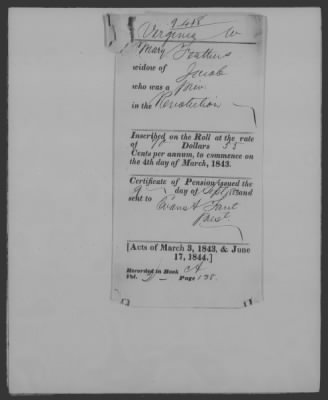 9418
Virginia W
Mary Feathers
widow of Jacob
who was a Priv
in the Revolution
Inscribed on the Roll at the rate
of Dollars 55
Cents per annum, to commence on
the 4th day of March, 1843.
Certificate of Pension issued the
9 day of Sept and
sent to
Present
[Acts of March 3, 1843, & June
17, 1844.]
Recorded in Book A
Vol. Page 138.